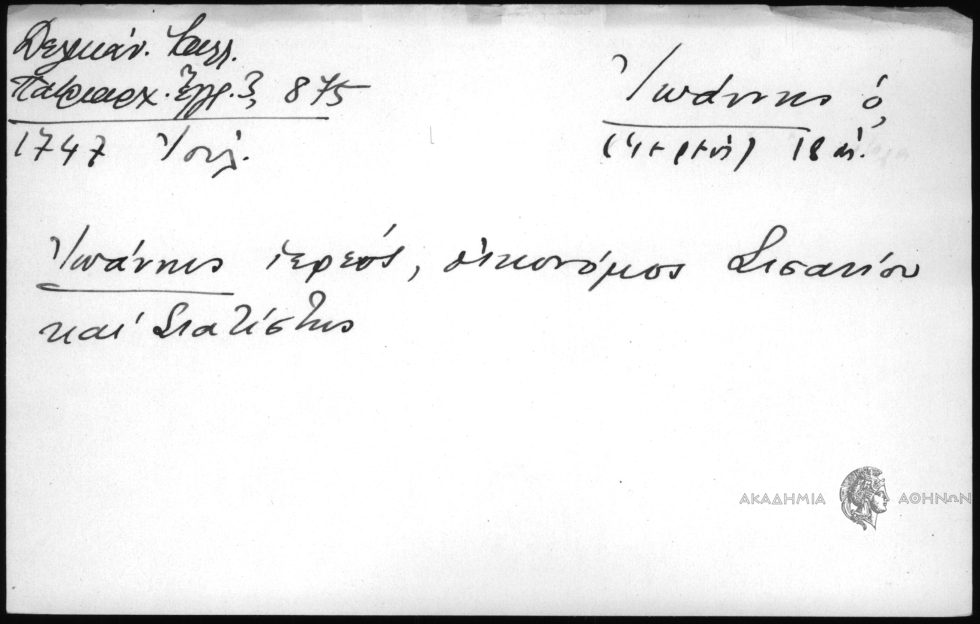 Δελικάν. Καλ.
Πατριαρχ. Ἔγγρ. 3, 875
1747 Ἰουλ.
Ἰωάννης ὁ,
(ἱερεύς) 18 αἰ.
Ἰωάννης ἱερεύς, οἰκονόμος Σισανίου
καί Σιατίστης
ΑΚΑΔΗΜΙΑ ΑΘΗΝΩΝ